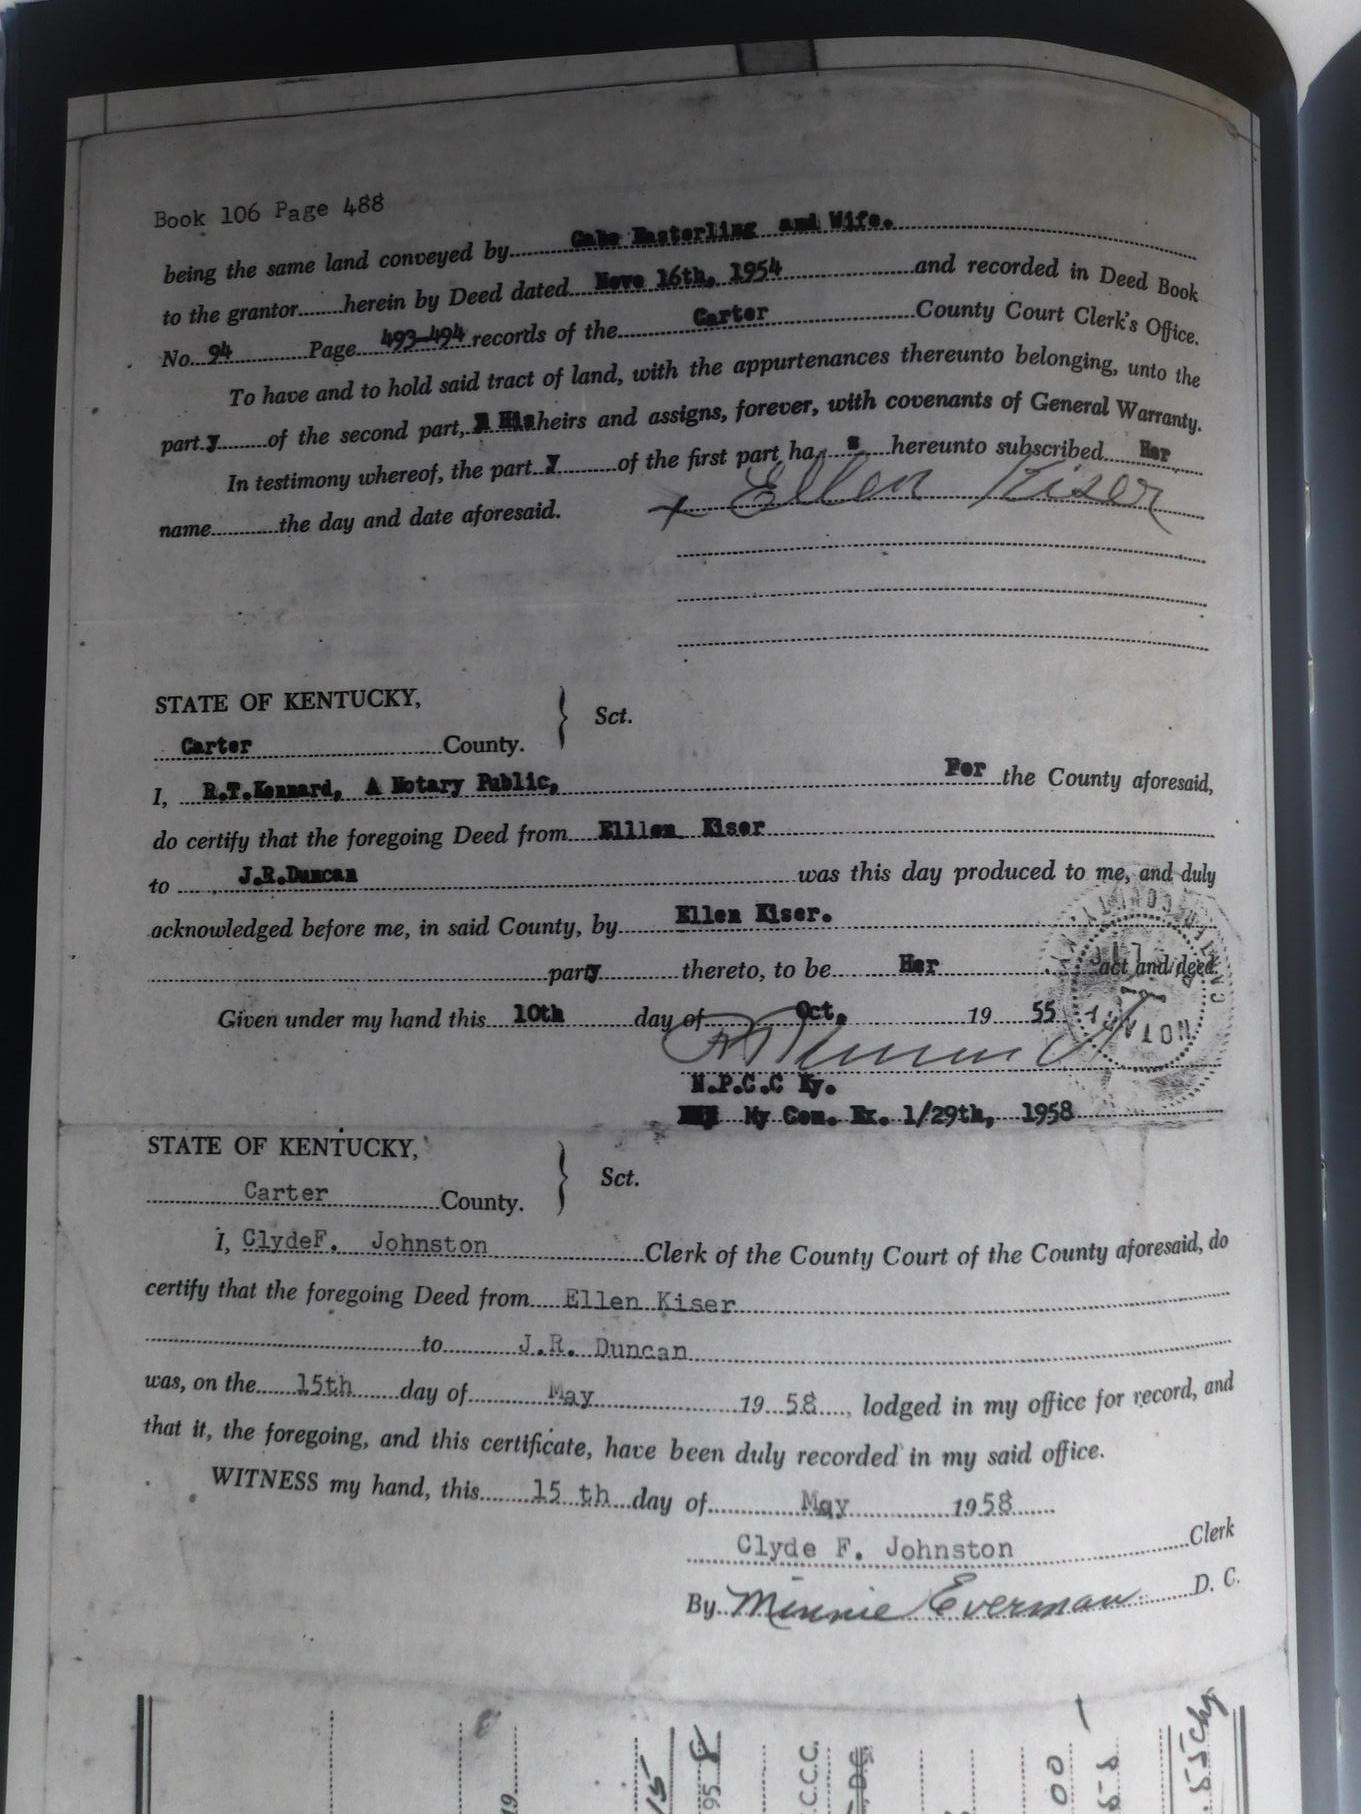 Book 106 Page 488
being the same land conveyed by Gabe Easterling and Wife.
to the grantor herein by Deed dated Nove 16th, 1954 and recorded in Deed Book
No. 94 Page 493-494 records of the Carter County Court Clerk's Office.
To have and to hold said tract of land, with the appurtenances thereunto belonging, unto the
part y of the second part, His heirs and assigns, forever, with covenants of General Warranty.
In testimony whereof, the part y of the first part ha s hereunto subscribed Her
name the day and date aforesaid. x Ellen Kiser
STATE OF KENTUCKY,
Carter County. } Sct.
I, R.T.Kennard, A Notary Public, For the County aforesaid,
do certify that the foregoing Deed from Elllen Kiser
to J.R.Duncan was this day produced to me, and duly
acknowledged before me, in said County, by Ellen Kiser.
party thereto, to be Her act and deed.
Given under my hand this 10th day of Oct. 19 55
N.P.C.C Ky.
My Com. Ex. 1/29th, 1958
STATE OF KENTUCKY,
Carter County. } Sct.
I, ClydeF. Johnston Clerk of the County Court of the County aforesaid, do
certify that the foregoing Deed from Ellen Kiser
to J.R. Duncan
was, on the 15th day of May 19 58, lodged in my office for record, and
that it, the foregoing, and this certificate, have been duly recorded in my said office.
WITNESS my hand, this 15 th day of May 1958
Clyde F. Johnston Clerk
By Minnie Everman D. C.